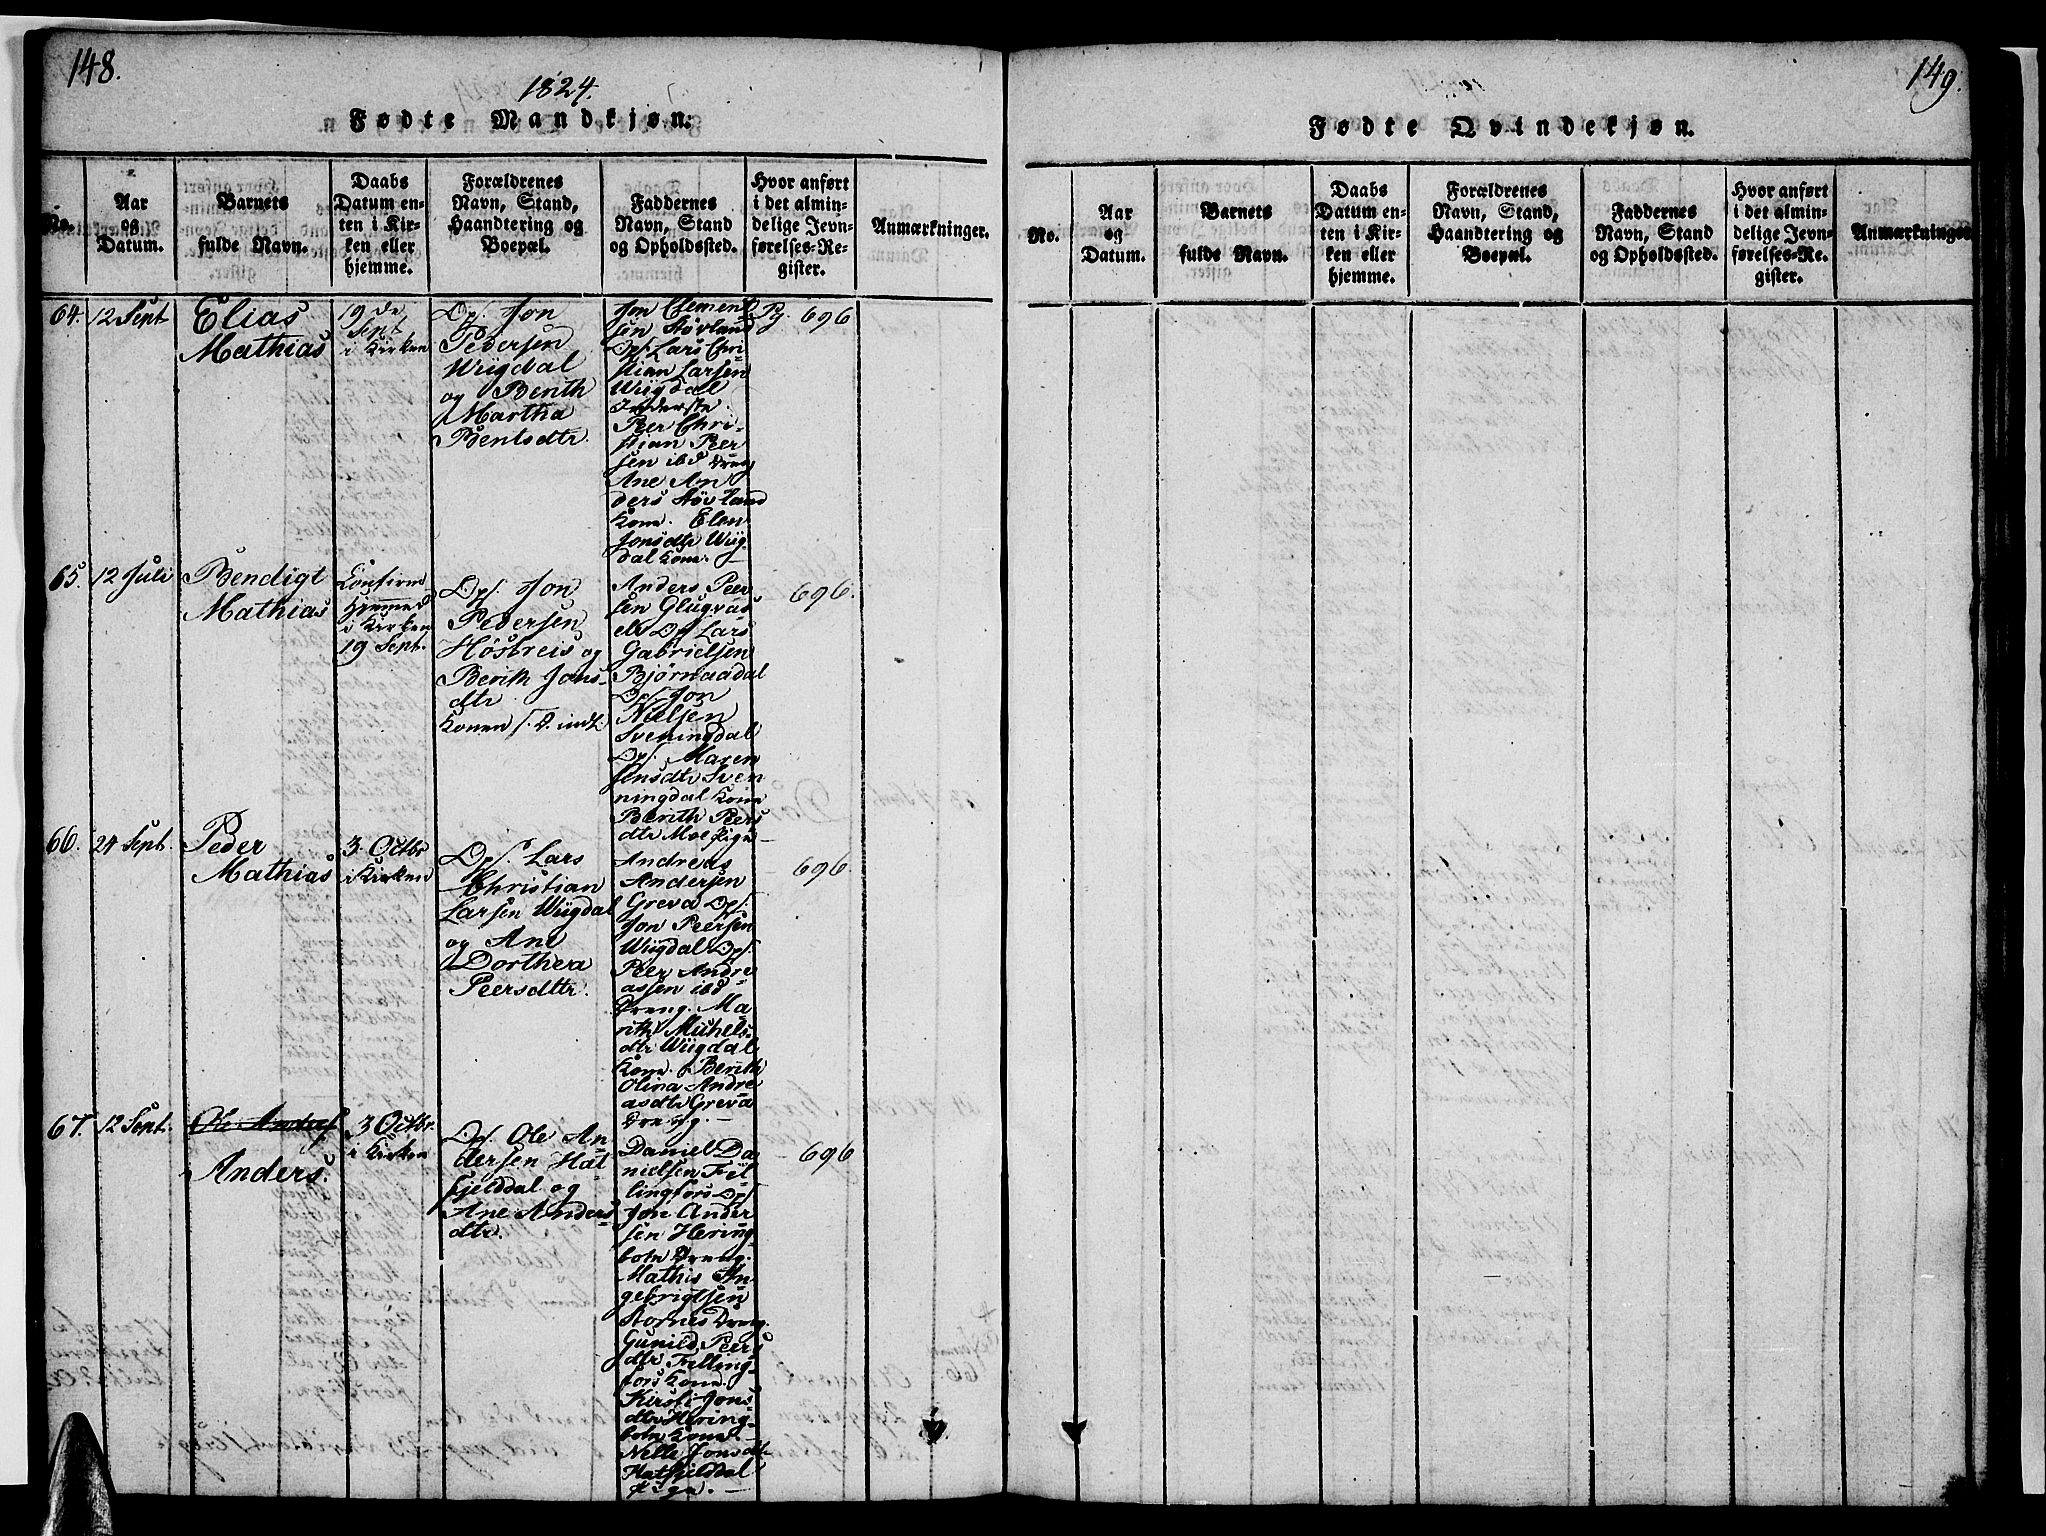 148.
1824.
Fødte Mandkjøn.
No.
Aar
og
Datum.
Barnets
fulde Navn.
Daabs
Datum en-
ten i Kir-
ken eller
hjemme.
Forældrenes
Navn, Stand,
Haandtering og
Boepæl.
Faddernes
Navn, Stand
og Opholdssted.
Hvor anført
i det almin-
delige Jevn-
førelses-Re-
gister.
Anmærkninger.
64. 12 Sept
Elias
Mathias
19 de
Sept
i Kirken
Op. Jon
Pedersen
Wiigdal
og Berith
Martha
Bentsdtr.
Jon Clement
sen Høvland
Op. Lars Chri-
stian Larsen
Wiigdal
Inderste
Peer Chri-
stian Peer
sen ibd Dreng
Ane An
ders Høvland
Kone. Elen
Jonsdtr Wiig-
dal Kone.
Pg. 696
65. 12 Juli
Bendigt
Mathias
Confirm
Hjemmed
i Kirken
19 Sept.
Op. Jon
Pedersen
Høsbreis og
Berith Jons-
dtr
Konen
Anders Peer
sen Glugvas
els Op Lars
Gabrielsen
Bjørnaadal
Op. Jon
Nielsen
Sveningdal
Op. Maren
Jensdtr Sven
ningdal Kone
Berith Peers
dtr Moe Pige
696.
66. 24 Sept.
Peder
Mathias
3. Octbr
i Kirken
Op. Lars
Christian
Larsen Wiigdal
og Ane
Dorthea
Peersdtr.
Andreas
Andersen
Greva Op.
Jon Peersen
Wiigdal Op.
Peer Andre
assen ibd
Dreng. Ma
rith Michels
dtr Wiigdal
Kone. Berith
Olina Andre
asdtr Greva
Dreng.
696
67. 12 Sept.
Ole Anders
Anders.
3 Octbr.
i Kirken
Op. Ole An
dersen Hat
fjelddal og
Ane Anders
dtr.
Daniel Da
nielsen Fil
lingfors Op
Jon Ander
sen Hering
botn Dreng.
Mathis In
gebrigtsen
Dreng.
Gunild Peers
dtr Filling
fors Kone.
Kirsti Jons
dtr Hering-
botn Kone.
Nelle Jonsdtr
Hatfjelddal
Pige.
696
149.
Fødte Qvindekjøn.
No.
Aar
og
Datum.
Barnets
fulde Navn.
Daabs
Datum en-
ten i Kir-
ken eller
hjemme.
Forældrenes
Navn, Stand,
Haandtering og
Boepæl.
Faddernes
Navn, Stand
og Opholdssted.
Hvor anført
i det almin-
delige Jevn-
førelses-Re-
gister.
Anmærkninger